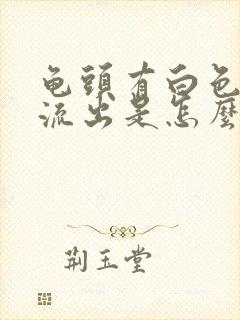 龟頭有白色
流出是怎麼
荆玉堂